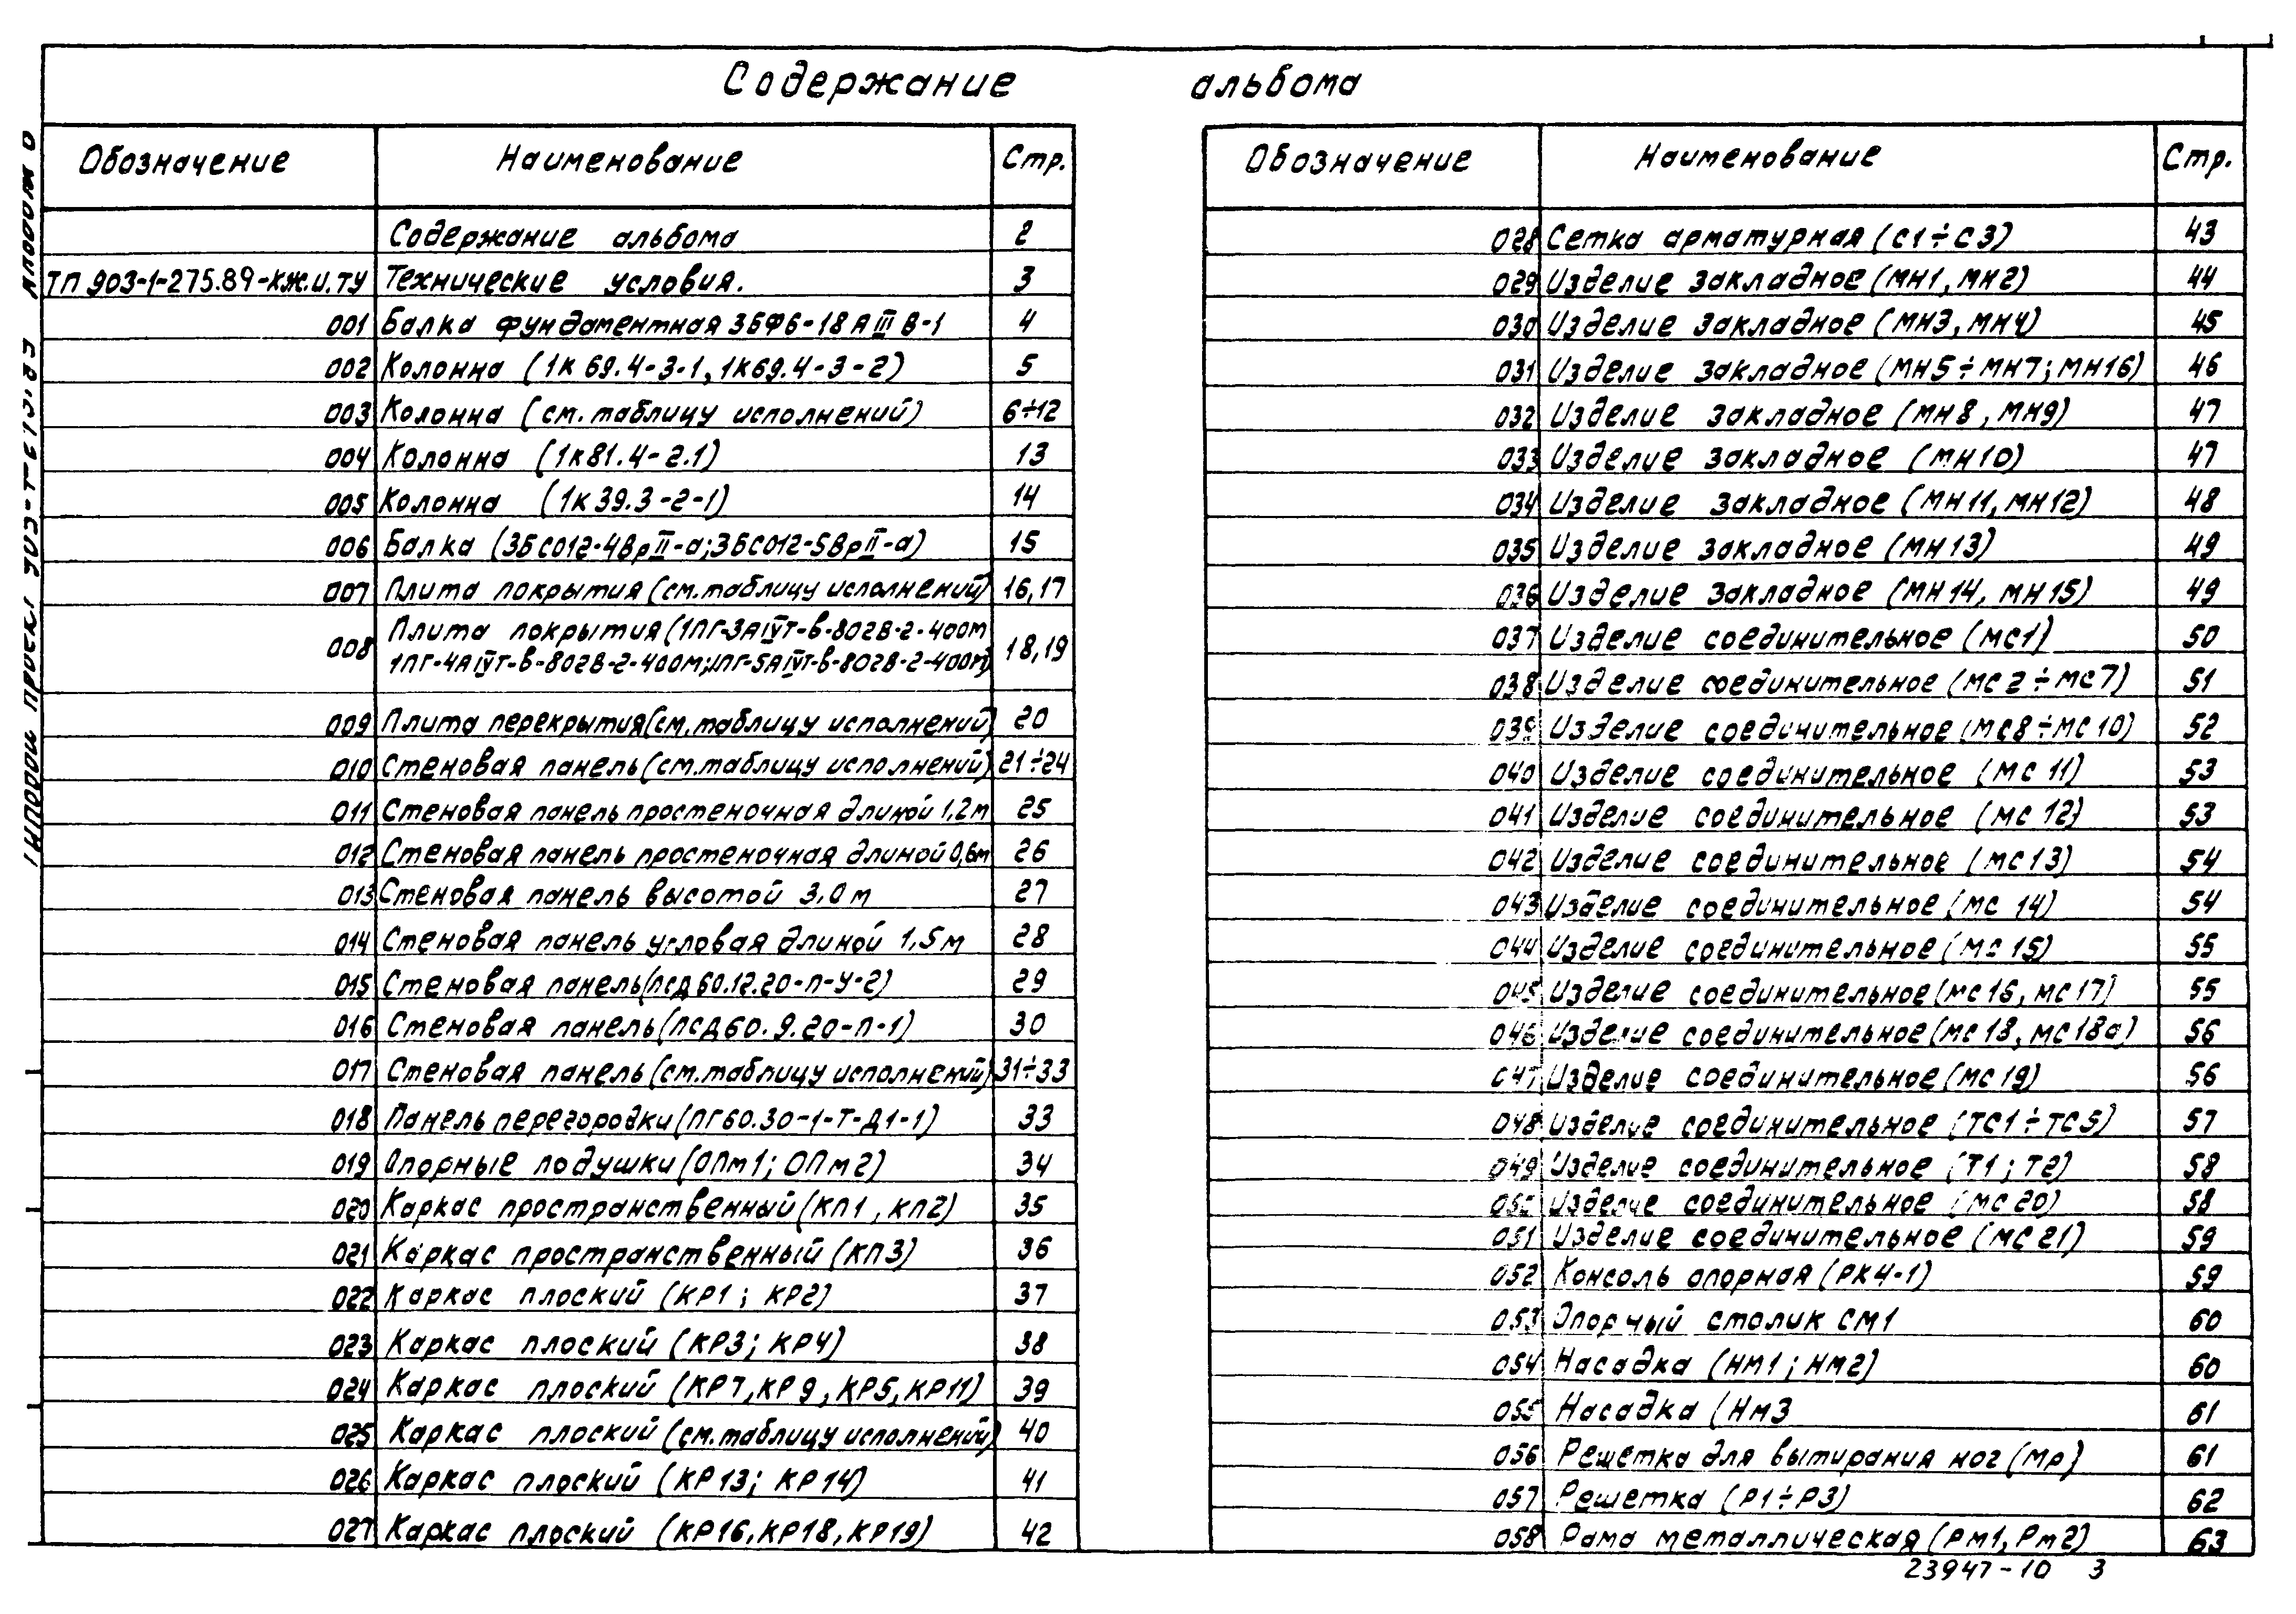 Содержание альбома
Обозначение Наименование Стр.
Содержание альбома 2
ТП 903-1-275.89-КЖ.И.ТУ Технические условия. 3
001 Балка фундаментная 3БФ6-18АIIIВ-1 4
002 Колонна (1К69.4-3-1, 1К69.4-3-2) 5
003 Колонна (см. таблицу исполнений) 6÷12
004 Колонна (1К81.4-2.1) 13
005 Колонна (1К39.3-2-1) 14
006 Балка (3БСО12-4ВрII-а; 3БСО12-5ВрII-а) 15
007 Плита покрытия (см. таблицу исполнений) 16,17
008 Плита покрытия (1ПГ-3АIVТ-В-802В-2-400м 18,19
1ПГ-4АIVТ-В-802В-2-400м; 1ПГ-5АIVТ-В-802В-2-400м)
009 Плита перекрытия (см. таблицу исполнений) 20
010 Стеновая панель (см. таблицу исполнений) 21÷24
011 Стеновая панель простеночная длиной 1,2м 25
012 Стеновая панель простеночная длиной 0,6м 26
013 Стеновая панель высотой 3,0м 27
014 Стеновая панель угловая длиной 1,5м 28
015 Стеновая панель (псд60.12.20-п-у-2) 29
016 Стеновая панель (ПСД60.9.20-П-1) 30
017 Стеновая панель (см. таблицу исполнений) 31÷33
018 Панель перегородки (ПГ60.30-1-Т-Д1-1) 33
019 Опорные подушки (ОПм1; ОПм2) 34
020 Каркас пространственный (КП1, КП2) 35
021 Каркас пространственный (КП3) 36
022 Каркас плоский (КР1; КР2) 37
023 Каркас плоский (КР3; КР4) 38
024 Каркас плоский (КР7, КР9, КР5, КР11) 39
025 Каркас плоский (см. таблицу исполнений) 40
026 Каркас плоский (КР13; КР14) 41
027 Каркас плоский (КР16, КР18, КР19) 42
Обозначение Наименование Стр.
028 Сетка арматурная (С1÷С3) 43
029 Изделие закладное (МН1, МН2) 44
030 Изделие закладное (МН3, МН4) 45
031 Изделие закладное (МН5÷МН7; МН16) 46
032 Изделие закладное (МН8, МН9) 47
033 Изделие закладное (МН10) 47
034 Изделие закладное (МН11, МН12) 48
035 Изделие закладное (МН13) 49
036 Изделие закладное (МН14, МН15) 49
037 Изделие соединительное (МС1) 50
038 Изделие соединительное (МС2÷МС7) 51
039 Изделие соединительное (МС8÷МС10) 52
040 Изделие соединительное (МС11) 53
041 Изделие соединительное (МС12) 53
042 Изделие соединительное (МС13) 54
043 Изделие соединительное (МС14) 54
044 Изделие соединительное (МС15) 55
045 Изделие соединительное (МС16, МС17) 55
046 Изделие соединительное (МС18, МС18а) 56
047 Изделие соединительное (МС19) 56
048 Изделие соединительное (ТС1÷ТС5) 57
049 Изделие соединительное (Т1; Т2) 58
050 Изделие соединительное (МС20) 58
051 Изделие соединительное (МС21) 59
052 Консоль опорная (РК4-1) 59
053 Опорный столик СМ1 60
054 Насадка (НМ1; НМ2) 60
055 Насадка (НМ3 61
056 Решетка для вытирания ног (Мр) 61
057 Решетка (Р1÷Р3) 62
058 Рама металлическая (РМ1, РМ2) 63
23947-10 3